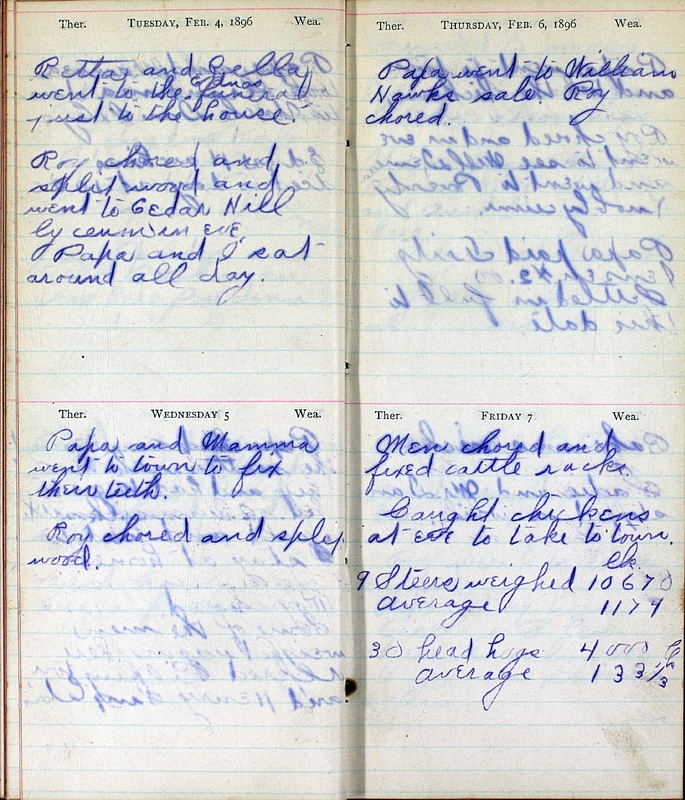 Ther. TUESDAY, FEB. 4, 1896 Wea.
Retta and Cella
went to the Ednas funeral
just to the house.
Roy chored and
split wood and
went to Cedar Hill
lyceum in eve.
Papa and I sat
around all day.
Ther. WEDNESDAY 5 Wea.
Papa and Mamma
went to town to fix
their teeth.
Roy chored and split
wood.
Ther. THURSDAY, FEB. 6, 1896 Wea.
Papa went to William
Hawks sale. Roy
chored.
Ther. FRIDAY 7 Wea.
Men chored and
fixed cattle racks.
Caught chickens
at eve to take to town.
lb.
9 Steers weighed 10670
average 1179
30 head hogs 4000 lb
average 133 1/3